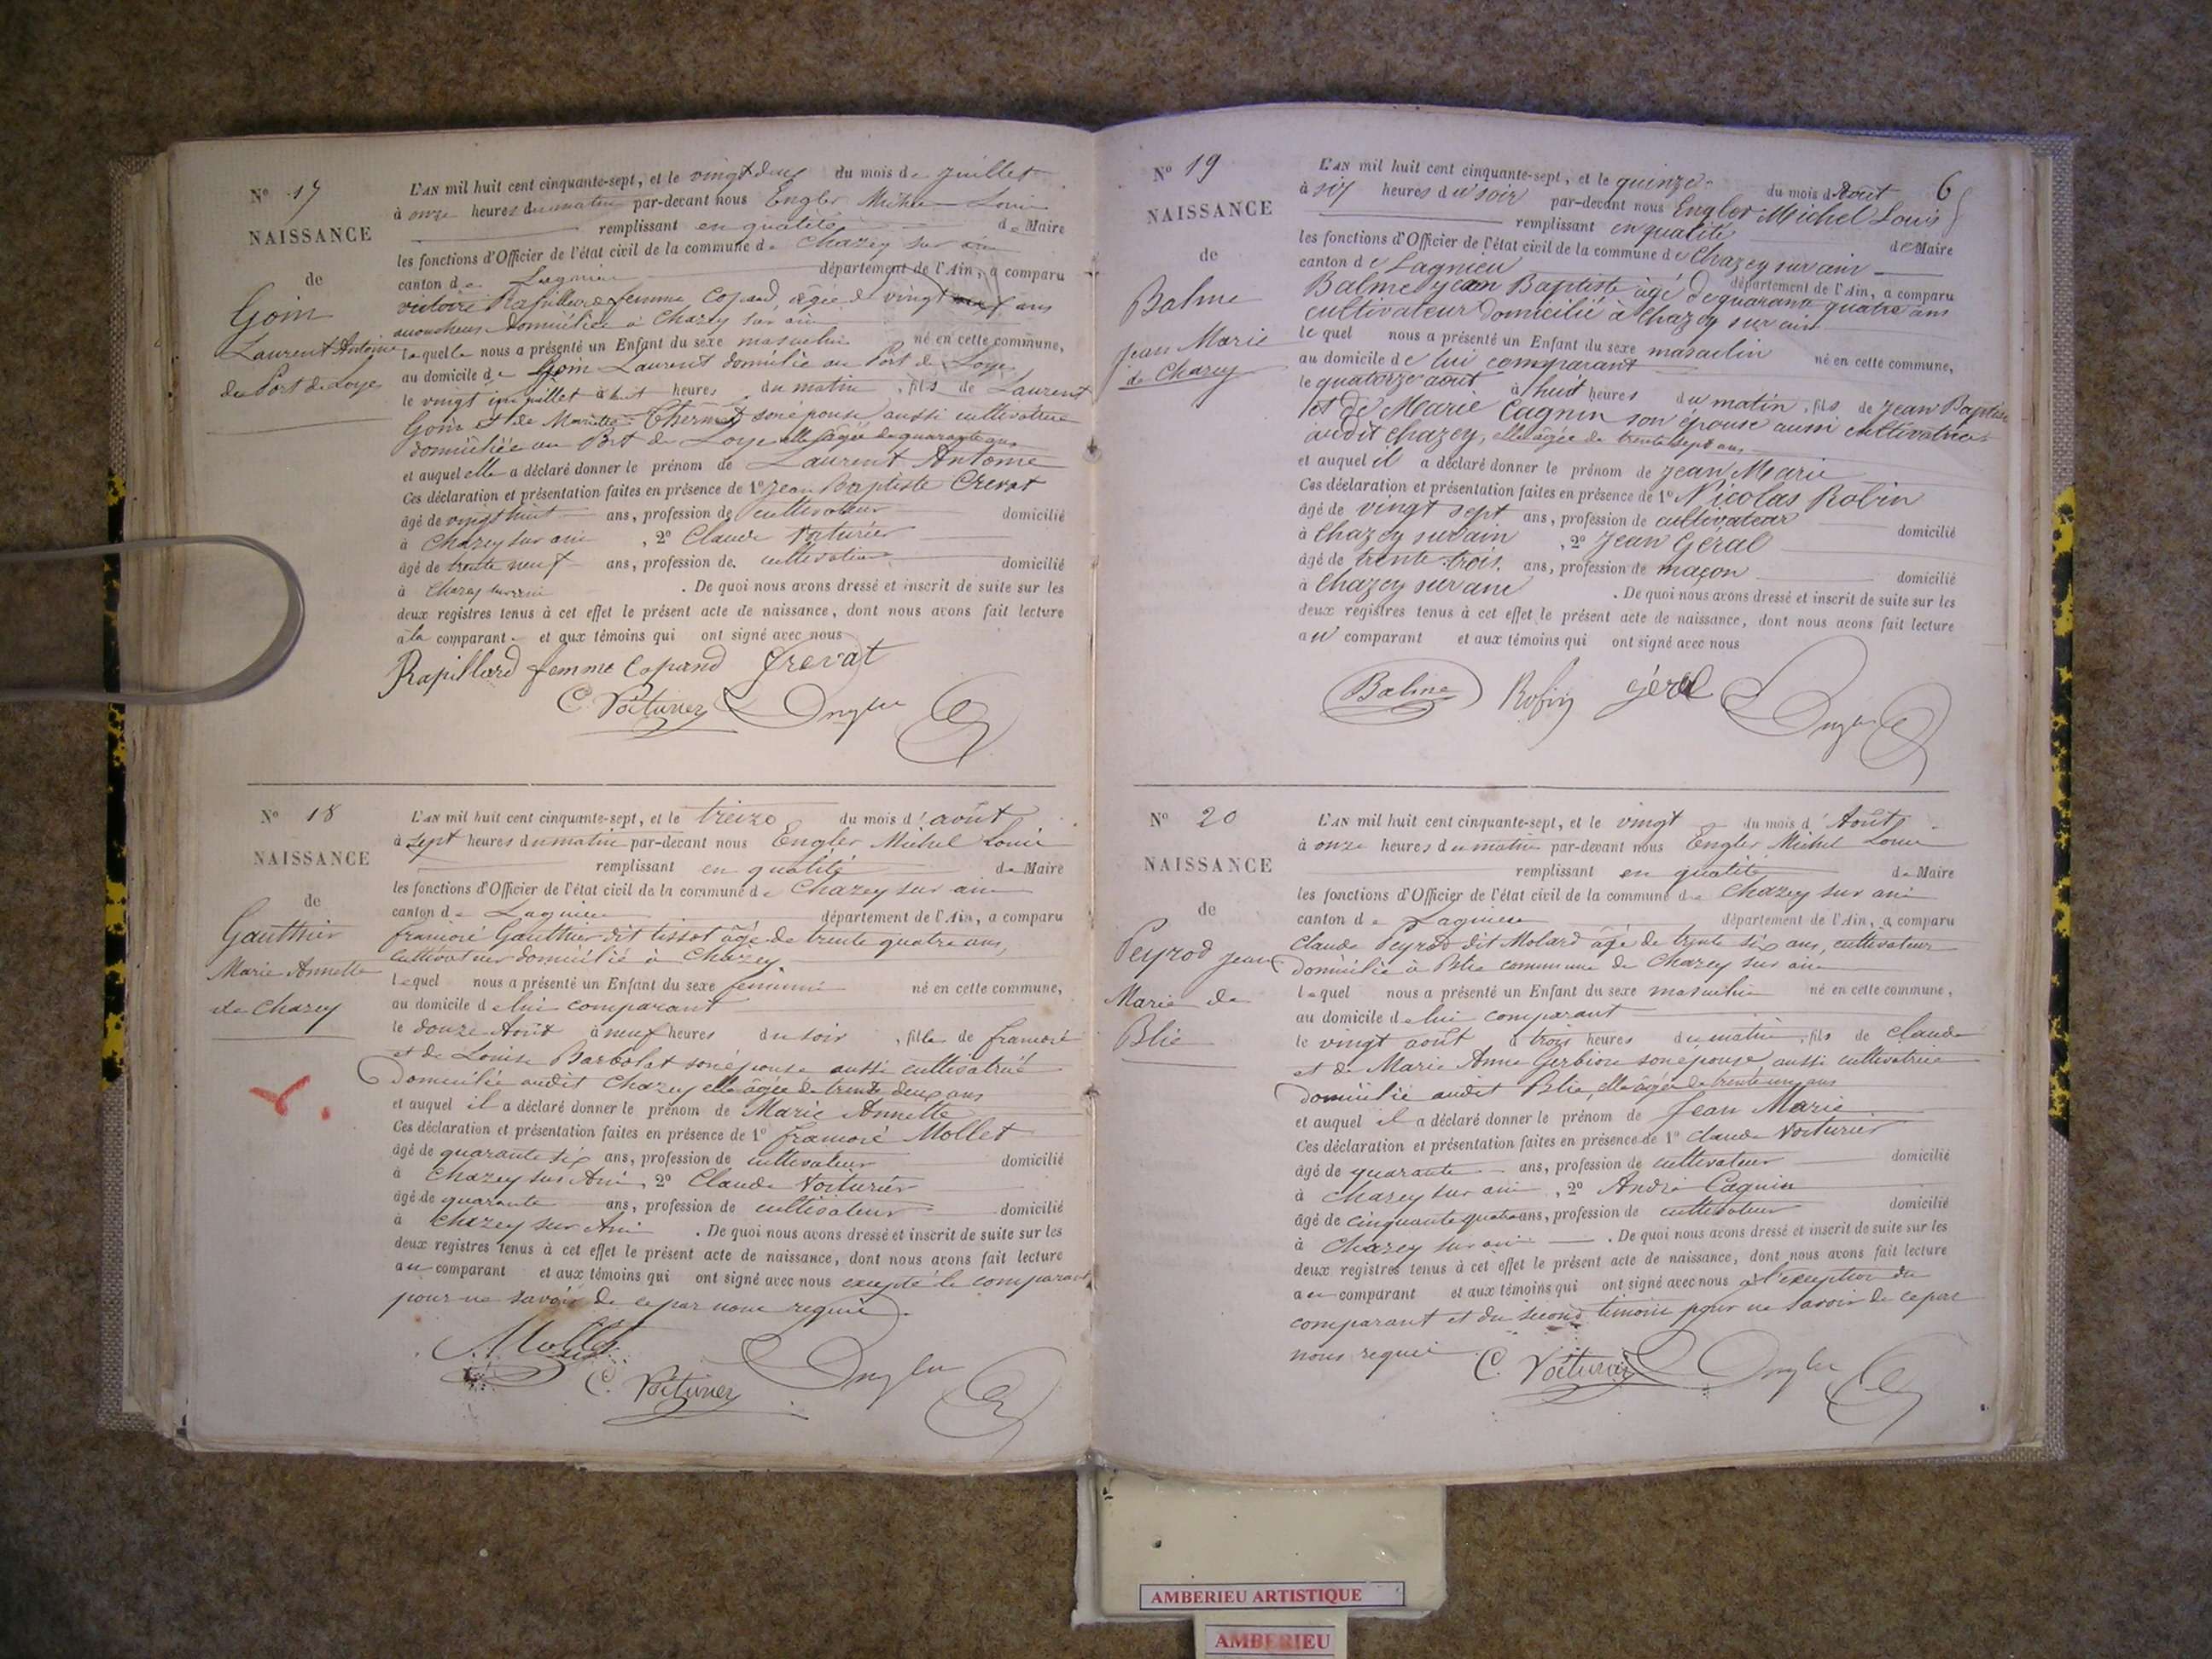 N° 17
NAISSANCE
de
Goin
Laurent Antoine
du Port de Loye
L'AN mil huit cent cinquante-sept, et le vingt deux du mois de juillet
à onze heures du matin par-devant nous Engler Michel Louis
remplissant en qualité de Maire
les fonctions d'Officier de l'état civil de la commune de Chazey sur ain
canton de Lagnieu département de l'Ain, a comparu
victoire Rapillard femme Copand, âgée de vingt ans
domiciliée à Chazey sur ain
laquelle nous a présenté un Enfant du sexe masculin né en cette commune,
au domicile de Goin Laurent domicilié au Port de Loye
le vingt un juillet à huit heures du matin, fils de Laurent
Goin et de Mariette son épouse aussi cultivatrice
domiciliée au Port de Loye elle âgée de quarante ans
et auquel elle a déclaré donner le prénom de Laurent Antoine
Ces déclaration et présentation faites en présence de 1° Jean Baptiste Crevat
âgé de vingt huit ans, profession de cultivateur domicilié
à Chazey sur ain, 2° Claude Voiturier
âgé de trente neuf ans, profession de cultivateur domicilié
à Chazey sur ain. De quoi nous avons dressé et inscrit de suite sur les
deux registres tenus à cet effet le présent acte de naissance, dont nous avons fait lecture
à la comparante et aux témoins qui ont signé avec nous
Rapillard femme Copand Crevat
C. Voiturier Engler
N° 18
NAISSANCE
de
Gauthier
Marie Annette
de Chazey
L'AN mil huit cent cinquante-sept, et le treize du mois d'août
à sept heures du matin par-devant nous Engler Michel Louis
remplissant en qualité de Maire
les fonctions d'Officier de l'état civil de la commune de Chazey sur ain
canton de Lagnieu département de l'Ain, a comparu
francois Gauthier dit tissot âgé de trente quatre ans,
cultivateur domicilié à Chazey
lequel nous a présenté un Enfant du sexe feminin né en cette commune,
au domicile de lui comparant
le douze Août à neuf heures du soir, fille de francois
et de Louise Barbolat son épouse aussi cultivatrice
domiciliée audit Chazey elle âgée de trente deux ans
et auquel il a déclaré donner le prénom de Marie Annette
Ces déclaration et présentation faites en présence de 1° francois Mollet
âgé de quarante six ans, profession de cultivateur domicilié
à Chazey sur Ain, 2° Claude Voiturier
âgé de quarante ans, profession de cultivateur domicilié
à Chazey sur Ain. De quoi nous avons dressé et inscrit de suite sur les
deux registres tenus à cet effet le présent acte de naissance, dont nous avons fait lecture
au comparant et aux témoins qui ont signé avec nous excepté le comparant
pour ne savoir de ce par nous requis.
Mollet
C. Voiturier Engler
N° 19
6
NAISSANCE
de
Balme
Jean Marie
de Chazey
L'AN mil huit cent cinquante-sept, et le quinze du mois d'Août
à six heures du soir par-devant nous Engler Michel Louis
remplissant en qualité de Maire
les fonctions d'Officier de l'état civil de la commune de Chazey sur ain
canton de Lagnieu département de l'Ain, a comparu
Balme Jean Baptiste âgé de quarante quatre ans
cultivateur domicilié à Chazey sur ain
le quel nous a présenté un Enfant du sexe masculin né en cette commune,
au domicile de lui comparant
le quatorze août à huit heures du matin, fils de Jean Baptiste
et de Marie Cagnin son épouse aussi cultivatrice
audit Chazey, elle âgée de trente sept ans
et auquel il a déclaré donner le prénom de Jean Marie
Ces déclaration et présentation faites en présence de 1° Nicolas Robin
âgé de vingt sept ans, profession de cultivateur domicilié
à Chazey sur ain, 2° Jean Géral
âgé de trente trois ans, profession de maçon domicilié
à Chazey sur ain. De quoi nous avons dressé et inscrit de suite sur les
deux registres tenus à cet effet le présent acte de naissance, dont nous avons fait lecture
au comparant et aux témoins qui ont signé avec nous
Balme Robin géral Engler
N° 20
NAISSANCE
de
Peyrod Jean
Marie de
Blie
L'AN mil huit cent cinquante-sept, et le vingt du mois d'Août
à onze heures du matin par-devant nous Engler Michel Louis
remplissant en qualité de Maire
les fonctions d'Officier de l'état civil de la commune de Chazey sur ain
canton de Lagnieu département de l'Ain, a comparu
Claude Peyrod dit Molard âgé de trente six ans, cultivateur
domicilié à Blie commune de Chazey sur ain
lequel nous a présenté un Enfant du sexe masculin né en cette commune,
au domicile de lui comparant
le vingt août à trois heures du matin, fils de Claude
et de Marie Anne Gerbion son épouse aussi cultivatrice
domiciliée audit Blie, elle âgée de trente un ans
et auquel il a déclaré donner le prénom de Jean Marie
Ces déclaration et présentation faites en présence de 1° Claude Voiturier
âgé de quarante ans, profession de cultivateur domicilié
à Chazey sur ain, 2° André Cagnin
âgé de cinquante quatre ans, profession de cultivateur domicilié
à Chazey sur ain. De quoi nous avons dressé et inscrit de suite sur les
deux registres tenus à cet effet le présent acte de naissance, dont nous avons fait lecture
au comparant et aux témoins qui ont signé avec nous à l'exception du
comparant et du second témoin pour ne savoir de ce par
nous requis C. Voiturier Engler
AMBERIEU ARTISTIQUE
AMBERIEU